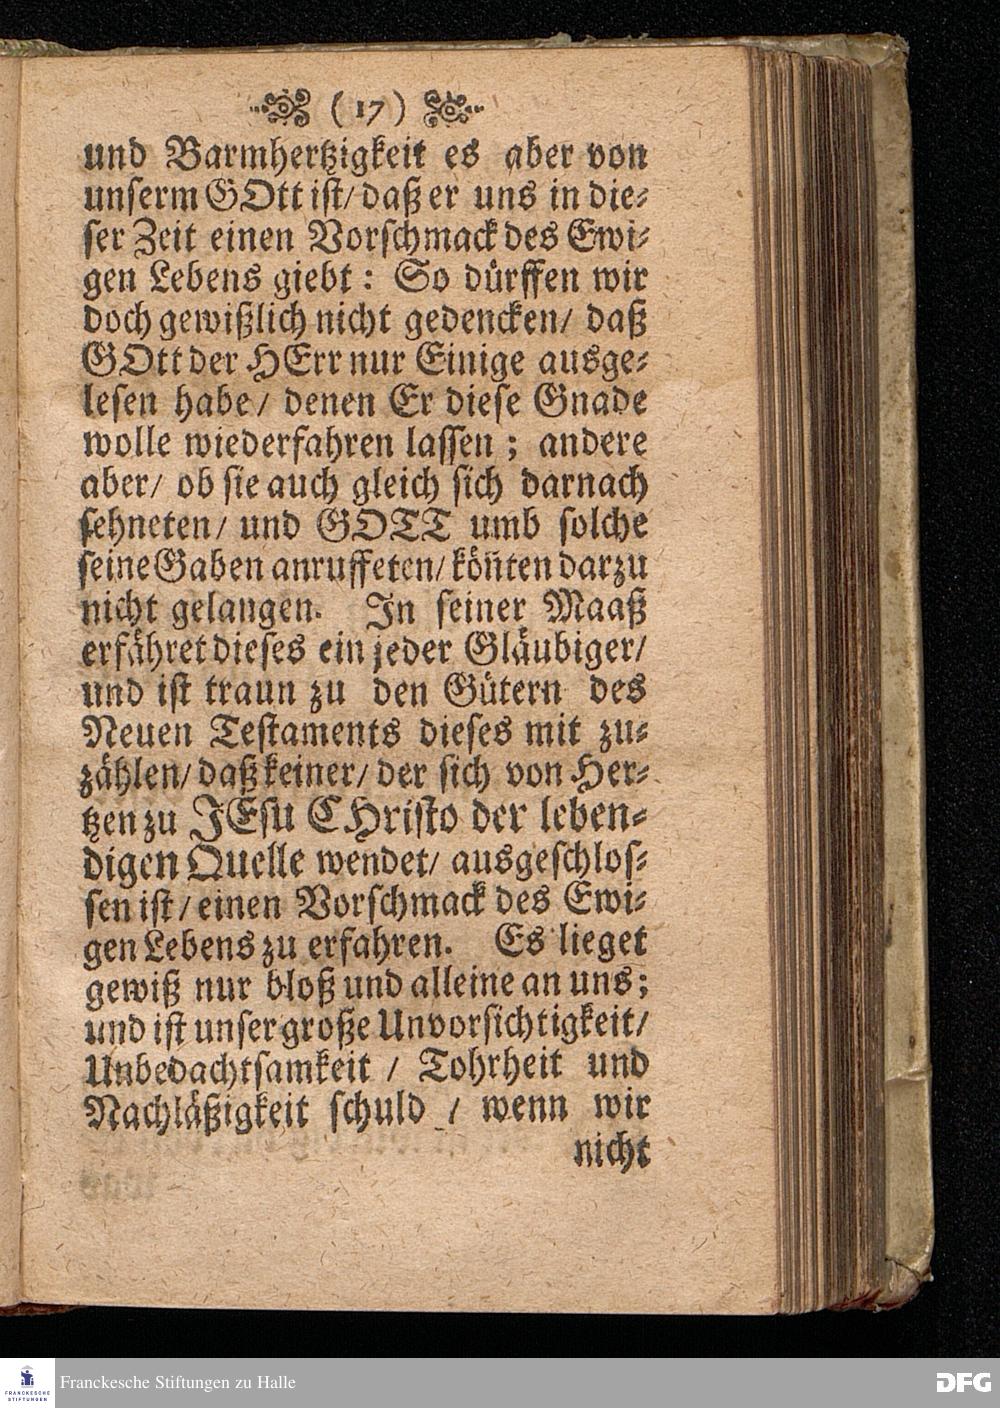 (17)
und Barmhertzigkeit es aber von
unserm GOtt ist/ daß er uns in die-
ser Zeit einen Vorschmack des Ewi-
gen Lebens giebt: So dürffen wir
doch gewißlich nicht gedencken/ daß
GOtt der HErr nur Einige ausge-
lesen habe/ denen Er diese Gnade
wolle wiederfahren lassen; andere
aber/ ob sie auch gleich sich darnach
sehneten/ und GOTT umb solche
seine Gaben anruffeten/ kön̄ten darzu
nicht gelangen. In seiner Maaß
erfähret dieses ein jeder Gläubiger/
und ist traun zu den Gütern des
Neuen Testaments dieses mit zu-
zählen/ daß keiner/ der sich von Her-
tzen zu JEsu CHristo der leben-
digen Quelle wendet/ ausgeschlos-
sen ist/ einen Vorschmack des Ewi-
gen Lebens zu erfahren. Es lieget
gewiß nur bloß und alleine an uns;
und ist unser große Unvorsichtigkeit/
Unbedachtsamkeit / Tohrheit und
Nachläßigkeit schuld / wenn wir
nicht
FRANCKESCHE
STIFTUNGEN
Franckesche Stiftungen zu Halle
DFG